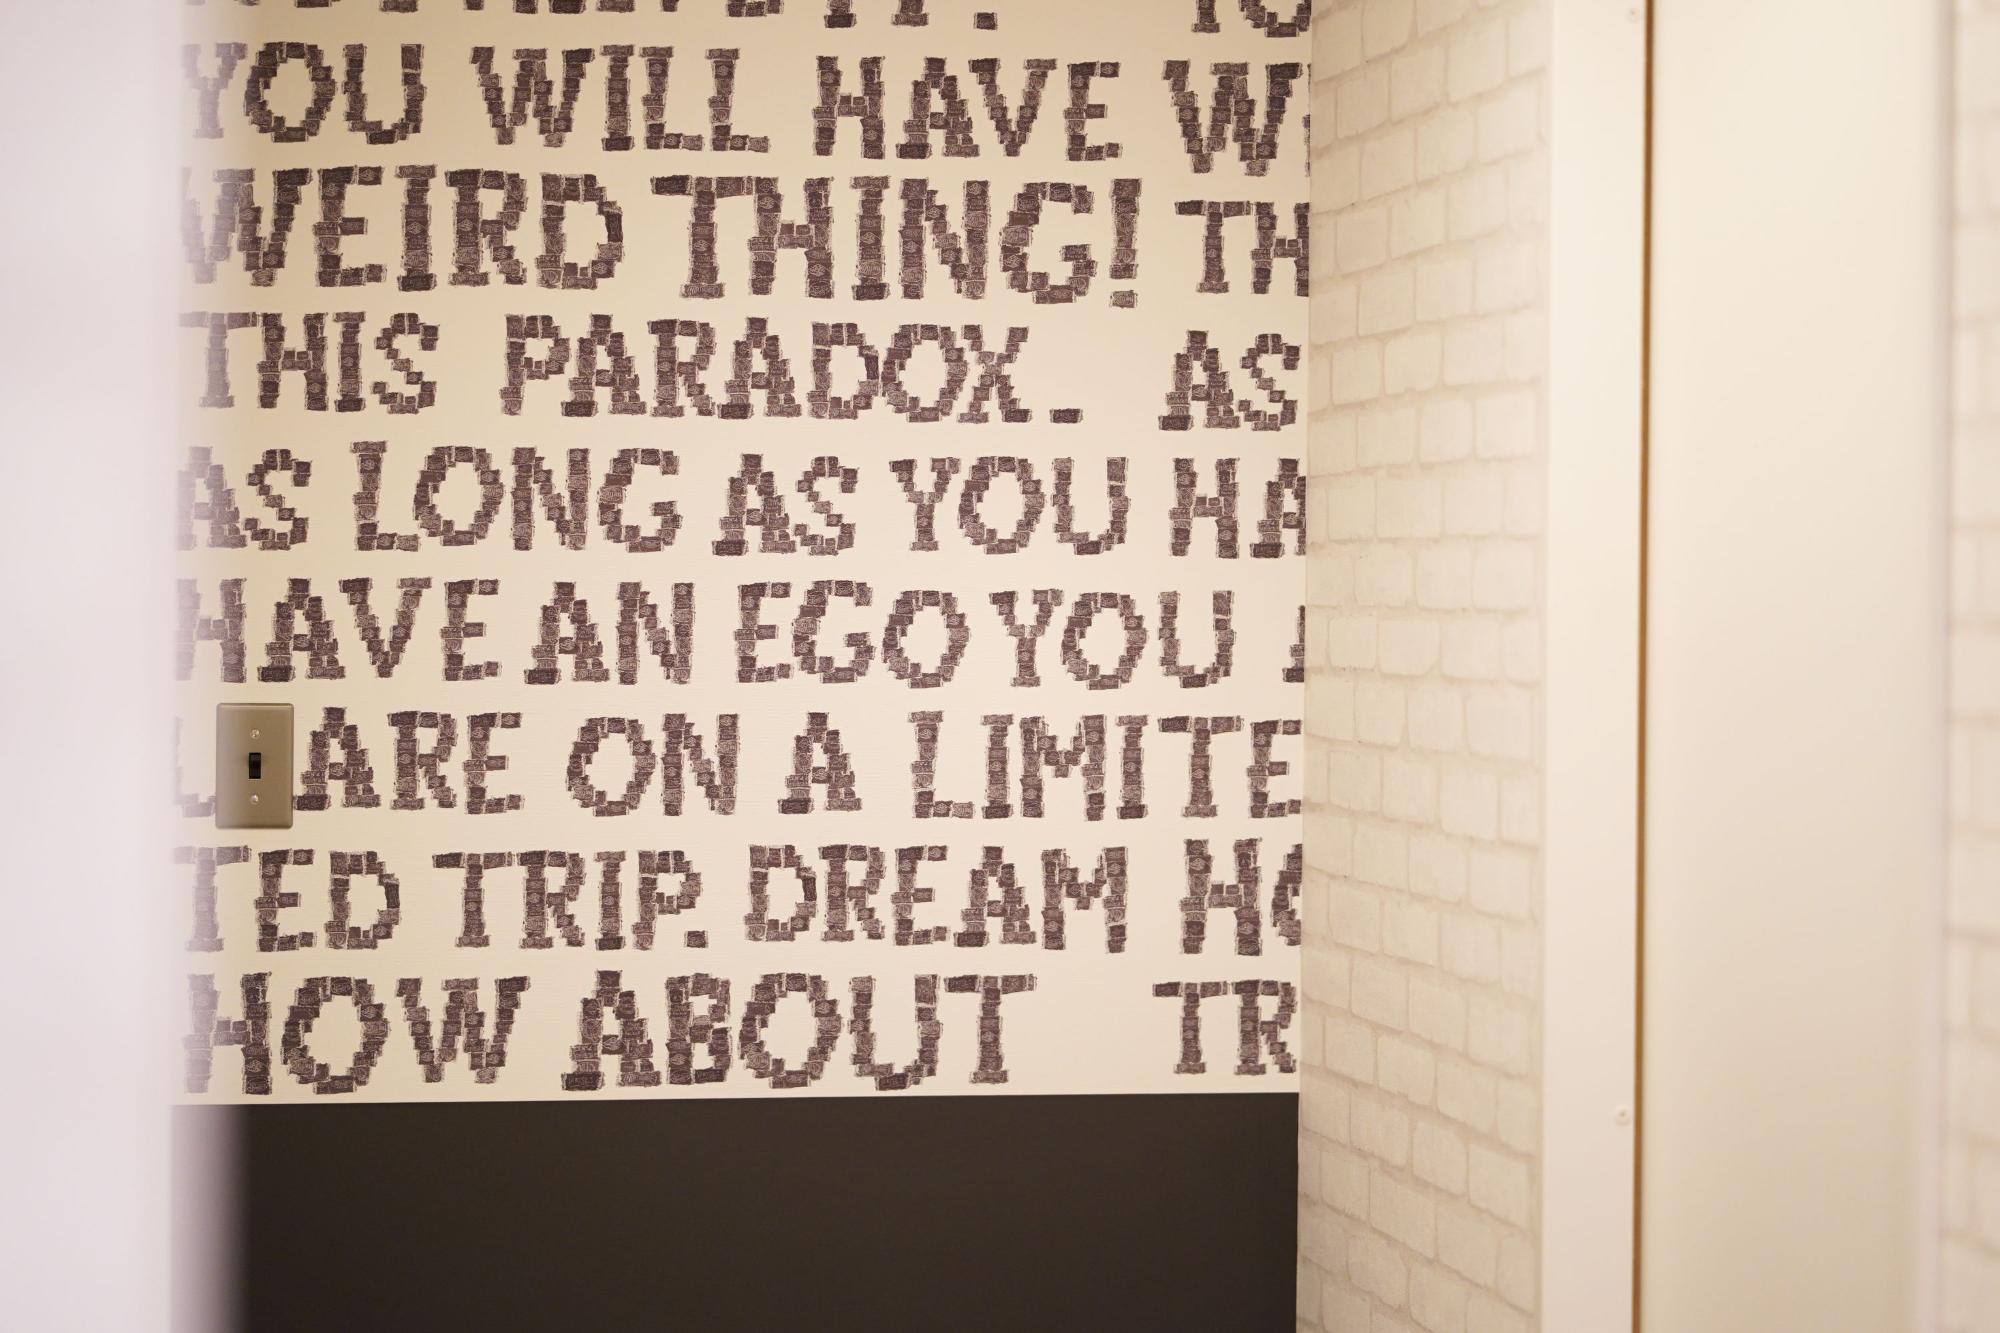 YOU WILL HAVE W
WEIRD THING! TH
THIS PARADOX. AS
AS LONG AS YOU HA
HAVE AN EGO YOU
ARE ON A LIMITE
TED TRIP. DREAM HO
HOW ABOUT TR